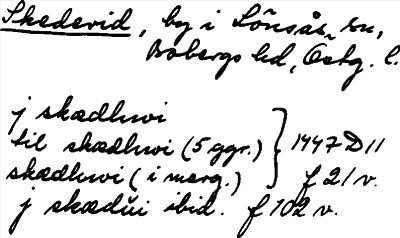 Skedevid, by i Lönsås sn,
Bobergs hd, Östg. l.
j skædhwi
til skædhwi (5 ggr.) } 1447 D 11
skædhwi (i marg.) f 21 v.
j skædui ibid. f 102 v.